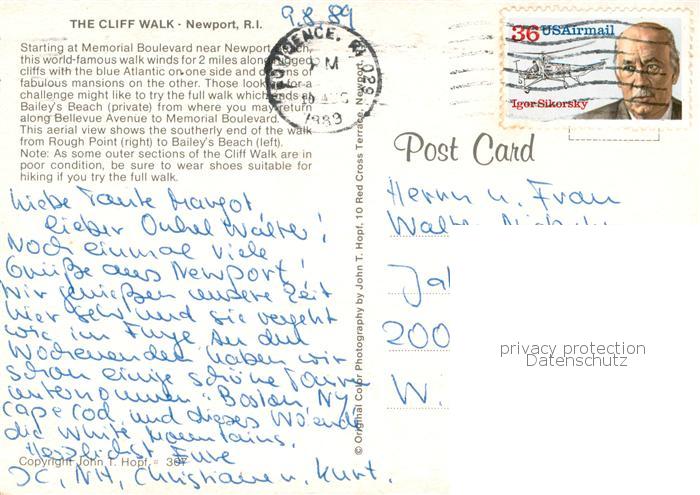 THE CLIFF WALK - Newport, R.I.
Starting at Memorial Boulevard near Newport Beach,
this world-famous walk winds for 2 miles along rugged
cliffs with the blue Atlantic on one side and dozens of
fabulous mansions on the other. Those looking for a
challenge might like to try the full walk which ends at
Bailey's Beach (private) from where you may return
along Bellevue Avenue to Memorial Boulevard.
This aerial view shows the southerly end of the walk
from Rough Point (right) to Bailey's Beach (left).
Note: As some outer sections of the Cliff Walk are in
poor condition, be sure to wear shoes suitable for
hiking if you try the full walk.
9.8.89
Liebe Tante Margot
lieber Onkel Walter!
Noch einmal viele
Grüße aus Newport!
Wir genießen unsere Zeit
hier sehr und sie vergeht
wie im Fluge. An den
Wochenenden haben wir
schon einige schöne Touren
unternommen: Boston, NY,
Cape Cod, und dieses WoEnde
die White Mountains.
Herzlichst Eure
Christiane u. Kurt.
Copyright John T. Hopf. 307
© Original Color Photography by John T. Hopf, 10 Red Cross Terrace, Newport,
PROVIDENCE, RI 029
PM
10
1989
36 USAirmail
Igor Sikorsky
Post Card
Herrn u. Frau
200
W.
privacy protection
Datenschutz